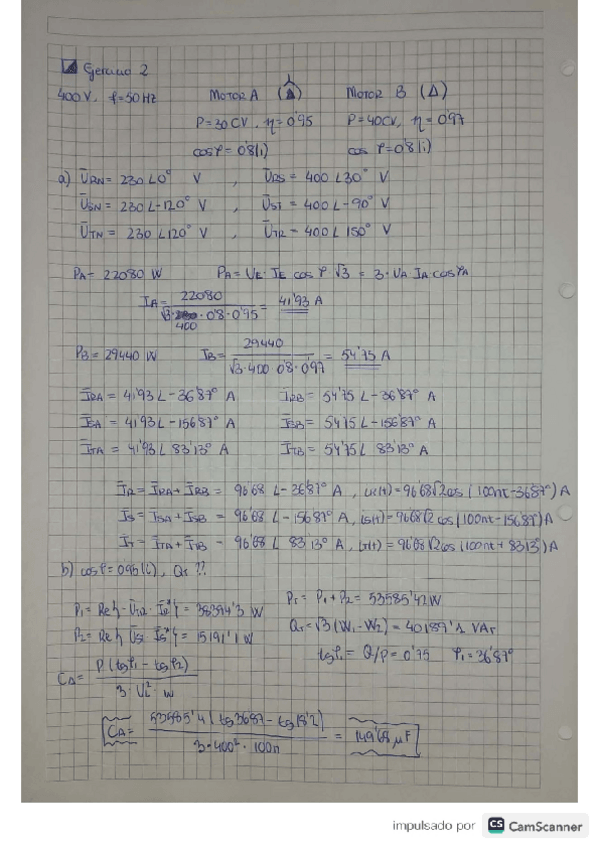 Ejercicio 2
400 V, f=50 Hz MOTOR A (Δ) MOTOR B (Δ)
P=30CV, η=0'95 P=40CV, η=0'97
cosφ=0'8(i) cos φ=0'8(i)
a) ŪRN= 230∠0° V , ŪRS= 400∠30° V
ŪSN= 230∠-120° V , ŪST= 400∠-90° V
ŪTN= 230∠120° V , ŪTR= 400∠150° V
PA= 22080 W PA= UE·IE cosφ √3 = 3·UA IA cosφA
IA= 22080 / √3·400·0'8·0'95 = 41'93 A
PB= 29440 W IB= 29440 / √3·400·0'8·0'97 = 54'75 A
ĪRA= 41'93∠-36'87° A ĪRB= 54'75∠-36'87° A
ĪSA= 41'93∠-156'87° A ĪSB= 54'75∠-156'87° A
ĪTA= 41'93∠83'13° A ĪTB= 54'75∠83'13° A
ĪR= ĪRA+ĪRB= 96'68∠-36'87° A, iR(t)=96'68√2cos(100πt-36'87°) A
ĪS= ĪSA+ĪSB= 96'68∠-156'87° A, iS(t)=96'68√2cos(100πt-156'87°) A
ĪT= ĪTA+ĪTB= 96'68∠83'13° A, iT(t)=96'68√2cos(100πt+83'13°) A
b) cosφ=0'95(i), QT ??
P1= Re{-ŪTR·ĪR*}= 38394'3 W PT= P1+P2= 53585'42W
P2= Re{ŪST·ĪS*}= 15191'1 W QT= √3(W1-W2)= 40189'1 VAr
tgφ1= Q/P=0'75 φ1=36'87°
CΔ= P(tgφ1-tgφ2) / 3·UL²·w
CΔ= 53585'4(tg36'87-tg18'2) / 3·400²·100π = 149'68 μF
impulsado por CS CamScanner